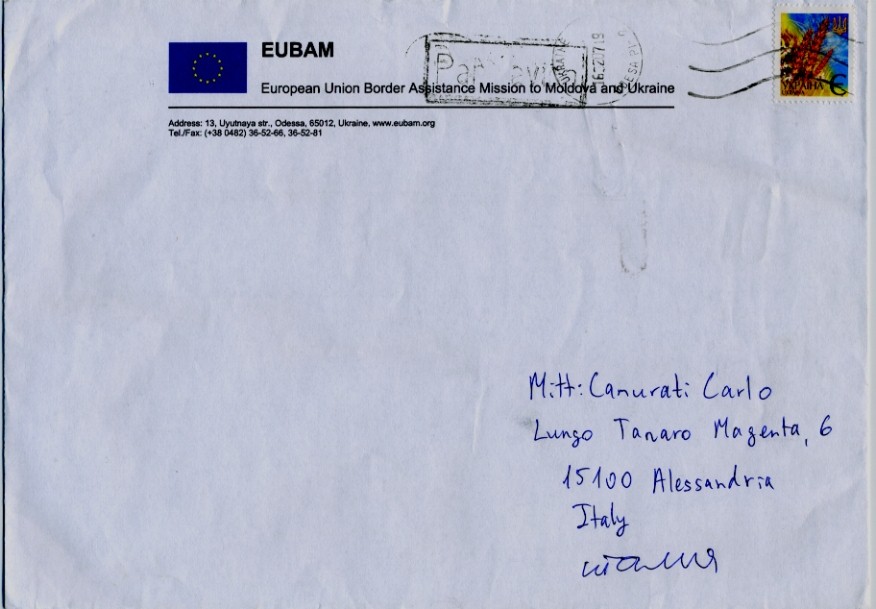 EUBAM
European Union Border Assistance Mission to Moldova and Ukraine
Address: 13, Uyutnaya str., Odessa, 65012, Ukraine, www.eubam.org
Tel./Fax: (+38 0482) 36-52-66, 36-52-81
Par Avion
УКРАЇНА
Є
Mitt: Canurati Carlo
Lungo Tanaro Magenta, 6
15100 Alessandria
Italy